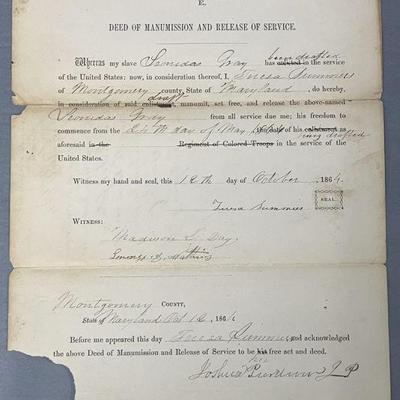 E.
DEED OF MANUMISSION AND RELEASE OF SERVICE.
been drafted
Whereas my slave Leonidas Gray has enlisted in the service
of the United States: now, in consideration thereof, I, Teresa Summers
of Montgomery county, State of Maryland, do hereby,
draft
in consideration of said enlistment, manumit, set free, and release the above-named
Leonidas Gray from all service due me; his freedom to
commence from the day of May 1864, the date of his enlistment as
being drafted
aforesaid in the Regiment of Colored Troops in the service of the
United States.
Witness my hand and seal, this 12th day of October 1864.
Teresa Summers SEAL.
Witness:
Madison L Day
Montgomery COUNTY,
State of Maryland Oct 12, 1864
Before me appeared this day Teresa Summers and acknowledged
the above Deed of Manumission and Release of Service to be his free act and deed.
her
Joshua JP